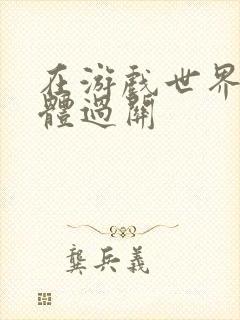 在游戏世界
體過關
龔兵義